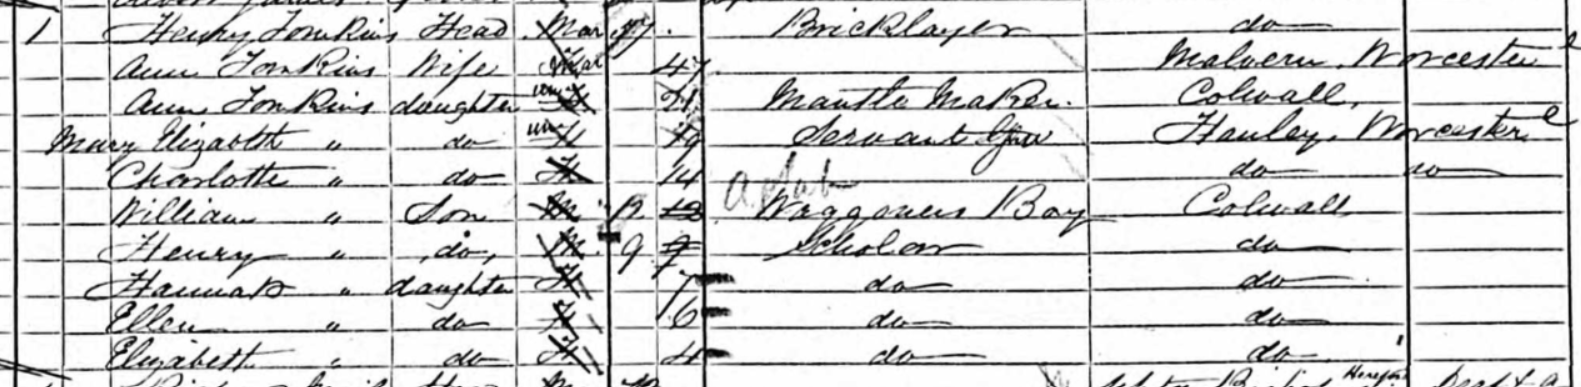 1 Henry Tomkins Head Mar 47 Bricklayer do
Ann Tomkins Wife Mar 47 Malvern, Worcester
Ann Tomkins daughter un 21 Mantle Maker. Colwall,
Mary Elizabeth " do un 19 Servant Hanley, Worcester
Charlotte " do F 14 do do
William " Son M 12 12 Waggoners Boy Colwall
Henry " do, M. 9 9 Scholar do
Hannah " daughter F 7 do do
Ellen " do F 6 do do
Elizabeth " do F 4 do do